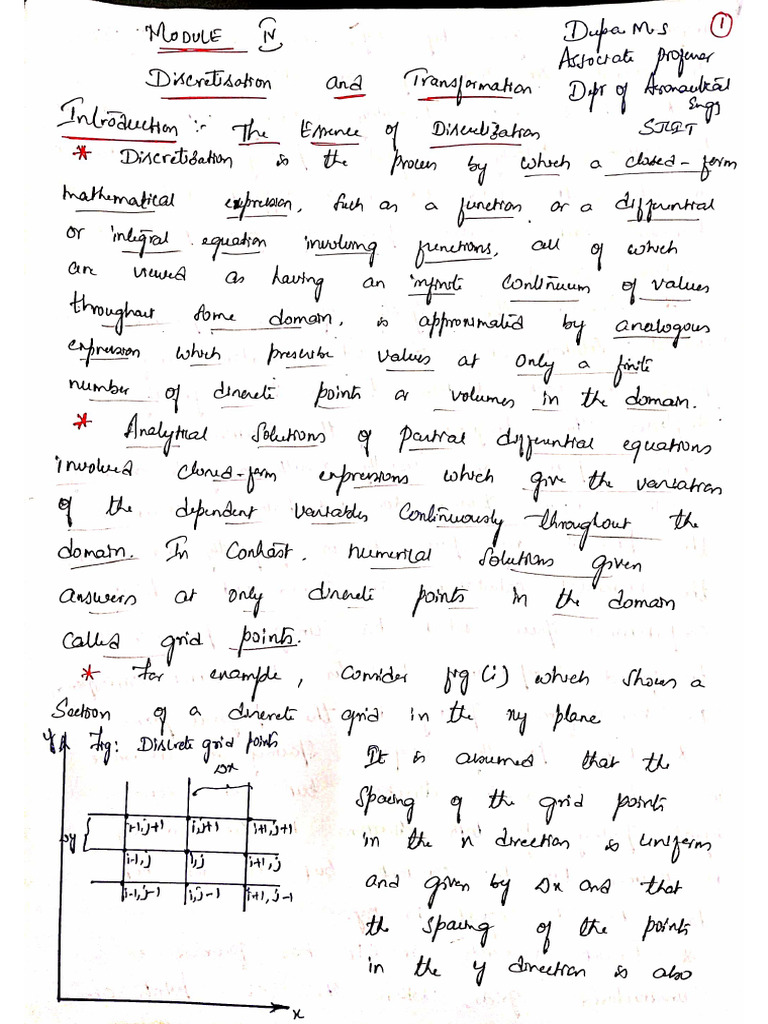 MODULE IV
Dupa M S
①
Associate profenor
Discretisation and Transformation
Dept of Aeronautical
Engg
SJCIT
Introduction :- The Essence of Discretization
* Discretisation is the proces by which a closed-form
mathematical expression, Such as a function or a differential
or integral equation involving functions, all of which
are viewed as having an infinite continuum of values
throughout some domain, is approximated by analogous
expression which prescribe values at only a finite
number of discrete points or volumes in the domain.
* Analytical Solutions of partial differential equations
involved closed-form expressions which give the variation
of the dependent variables continuously throughout the
domain. In Contrast, numerical solutions given
answers at only discrete points in the domain
called grid points.
* For example, Consider fig (i) which shows a
Section of a discrete grid in the xy plane
y
Fig: Discrete grid points
Δx
i-1,j+1 i,j+1 i+1,j+1
Δy
i-1,j i,j i+1,j
i-1,j-1 i,j-1 i+1,j-1
x
It is assumed that the
spacing of the grid points
in the 'x' direction is uniform
and given by Δx and that
the spacing of the points
in the y direction is also